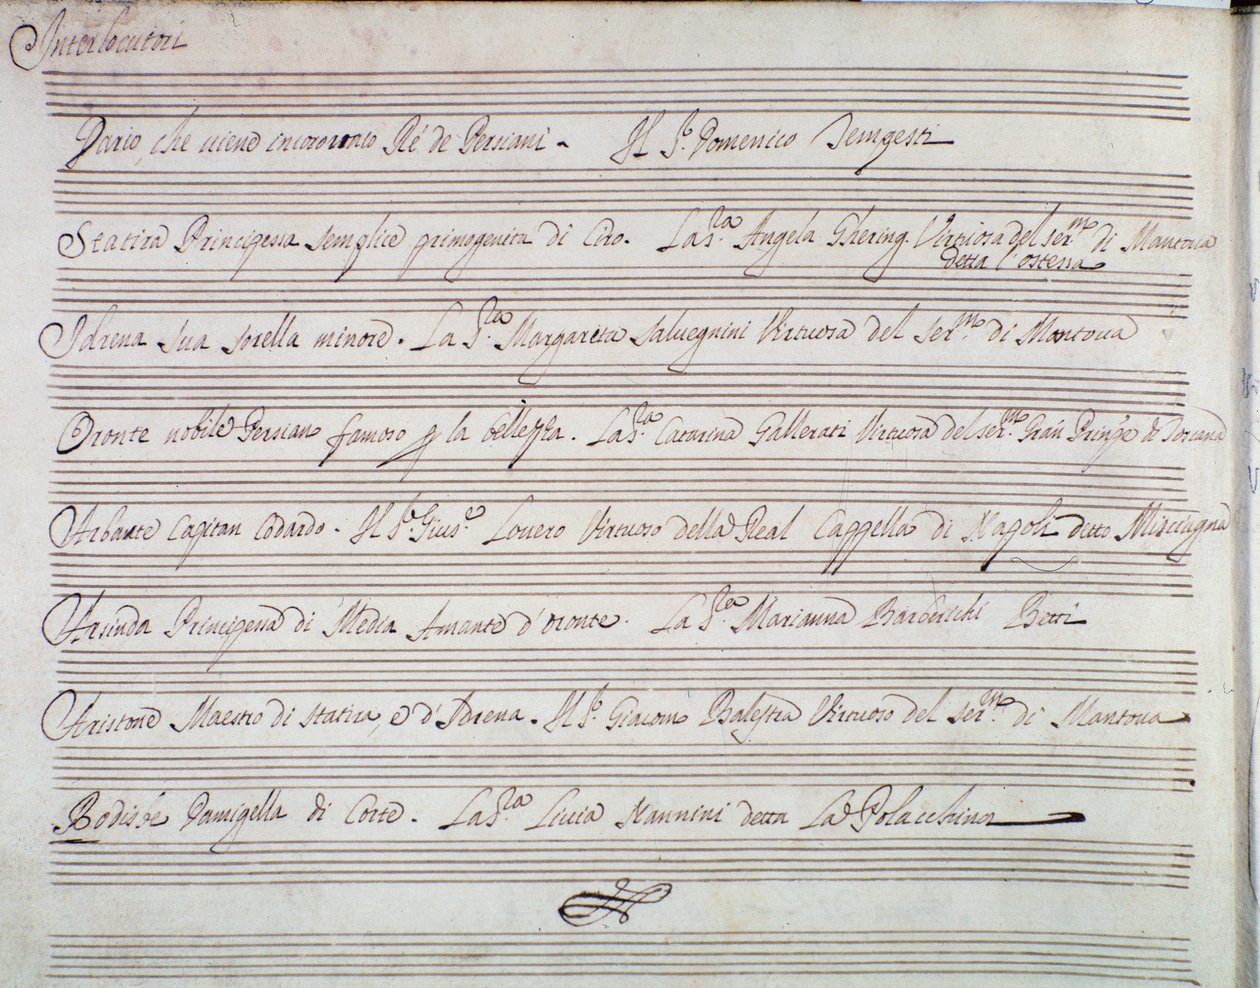 Interlocutori
Dario, che viene incoronato Ré de Persiani. Il S.r Domenico Tempesti
Statira Principessa semplice primogenita di Ciro. La S.ra Angela Ghering. Virtuosa del Ser.mo di Mantova
detta l'ostessa
Idrena sua sorella minore. La S.ra Margarita Salvegnini Virtuosa del Ser.mo di Mantova
Oronte nobile Persiano famoso p la bellezza. La S.ra Catarina Gallerati Virtuosa del Ser.mo Gran Prinpe di Toscana
Arbante Capitan Codardo. Il S.r Gius.e Lovero Virtuoso della Real Cappella di Napoli ditto
Arsinda Principessa di Media Amante d'Oronte. La S.ra Marianna Barberichi Betti
Aristone Maestro di Statira, e d'Idrena. Il S.r Giacomo Balestra Virtuoso del Ser.mo di Mantova
Rodisbe Damigella di Corte. La S.ra Livia Nannini detta La Polacchina